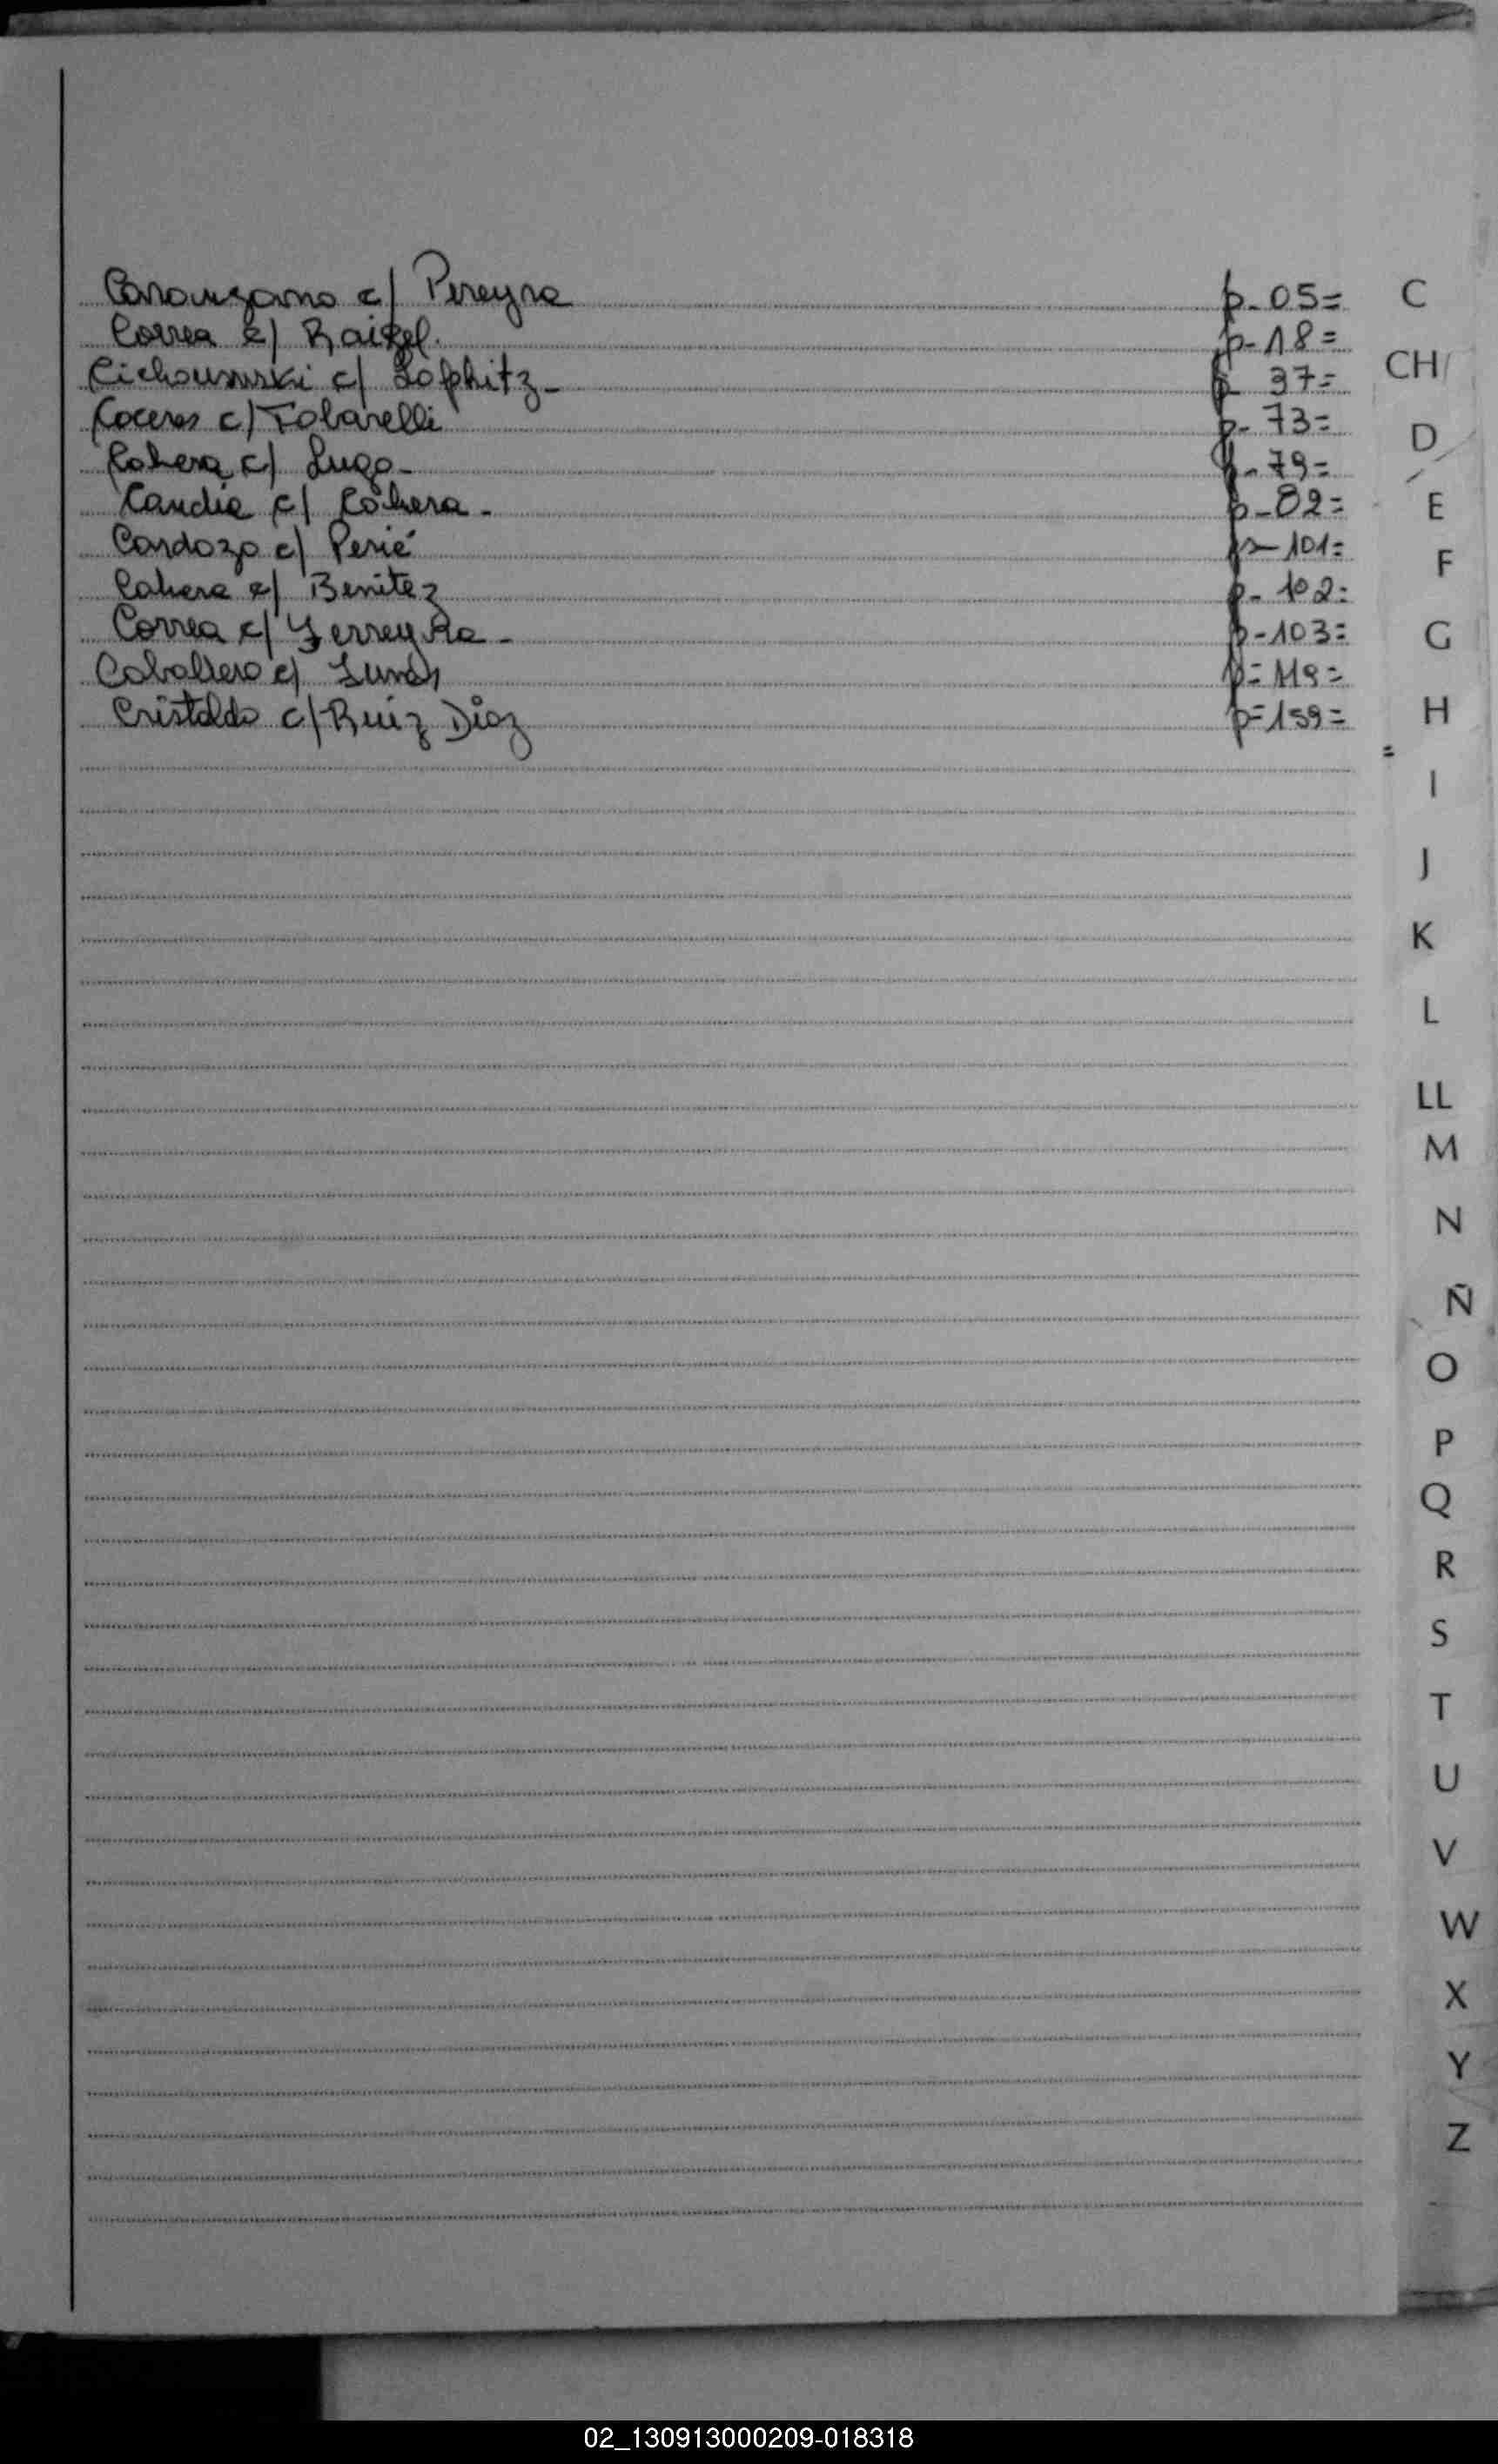 c/ Pereyra p-05= C
Correa c/ Raikel. p-18=
c/ p 37= CH
Coceres c/ Tobarelli p-73=
D
Cabera c/ Lugo- p-79=
Candia c/ Cabera- p-82= E
Cardozo c/ Perié p-101=
F
Cabera c/ Benitez p-102=
Correa c/ Ferreyra- p-103= G
Caballero c/ p=119=
Cristaldo c/ Ruiz Diaz p=159= H
=
I
J
K
L
LL
M
N
Ñ
O
P
Q
R
S
T
U
V
W
X
Y
Z
02_130913000209-018318